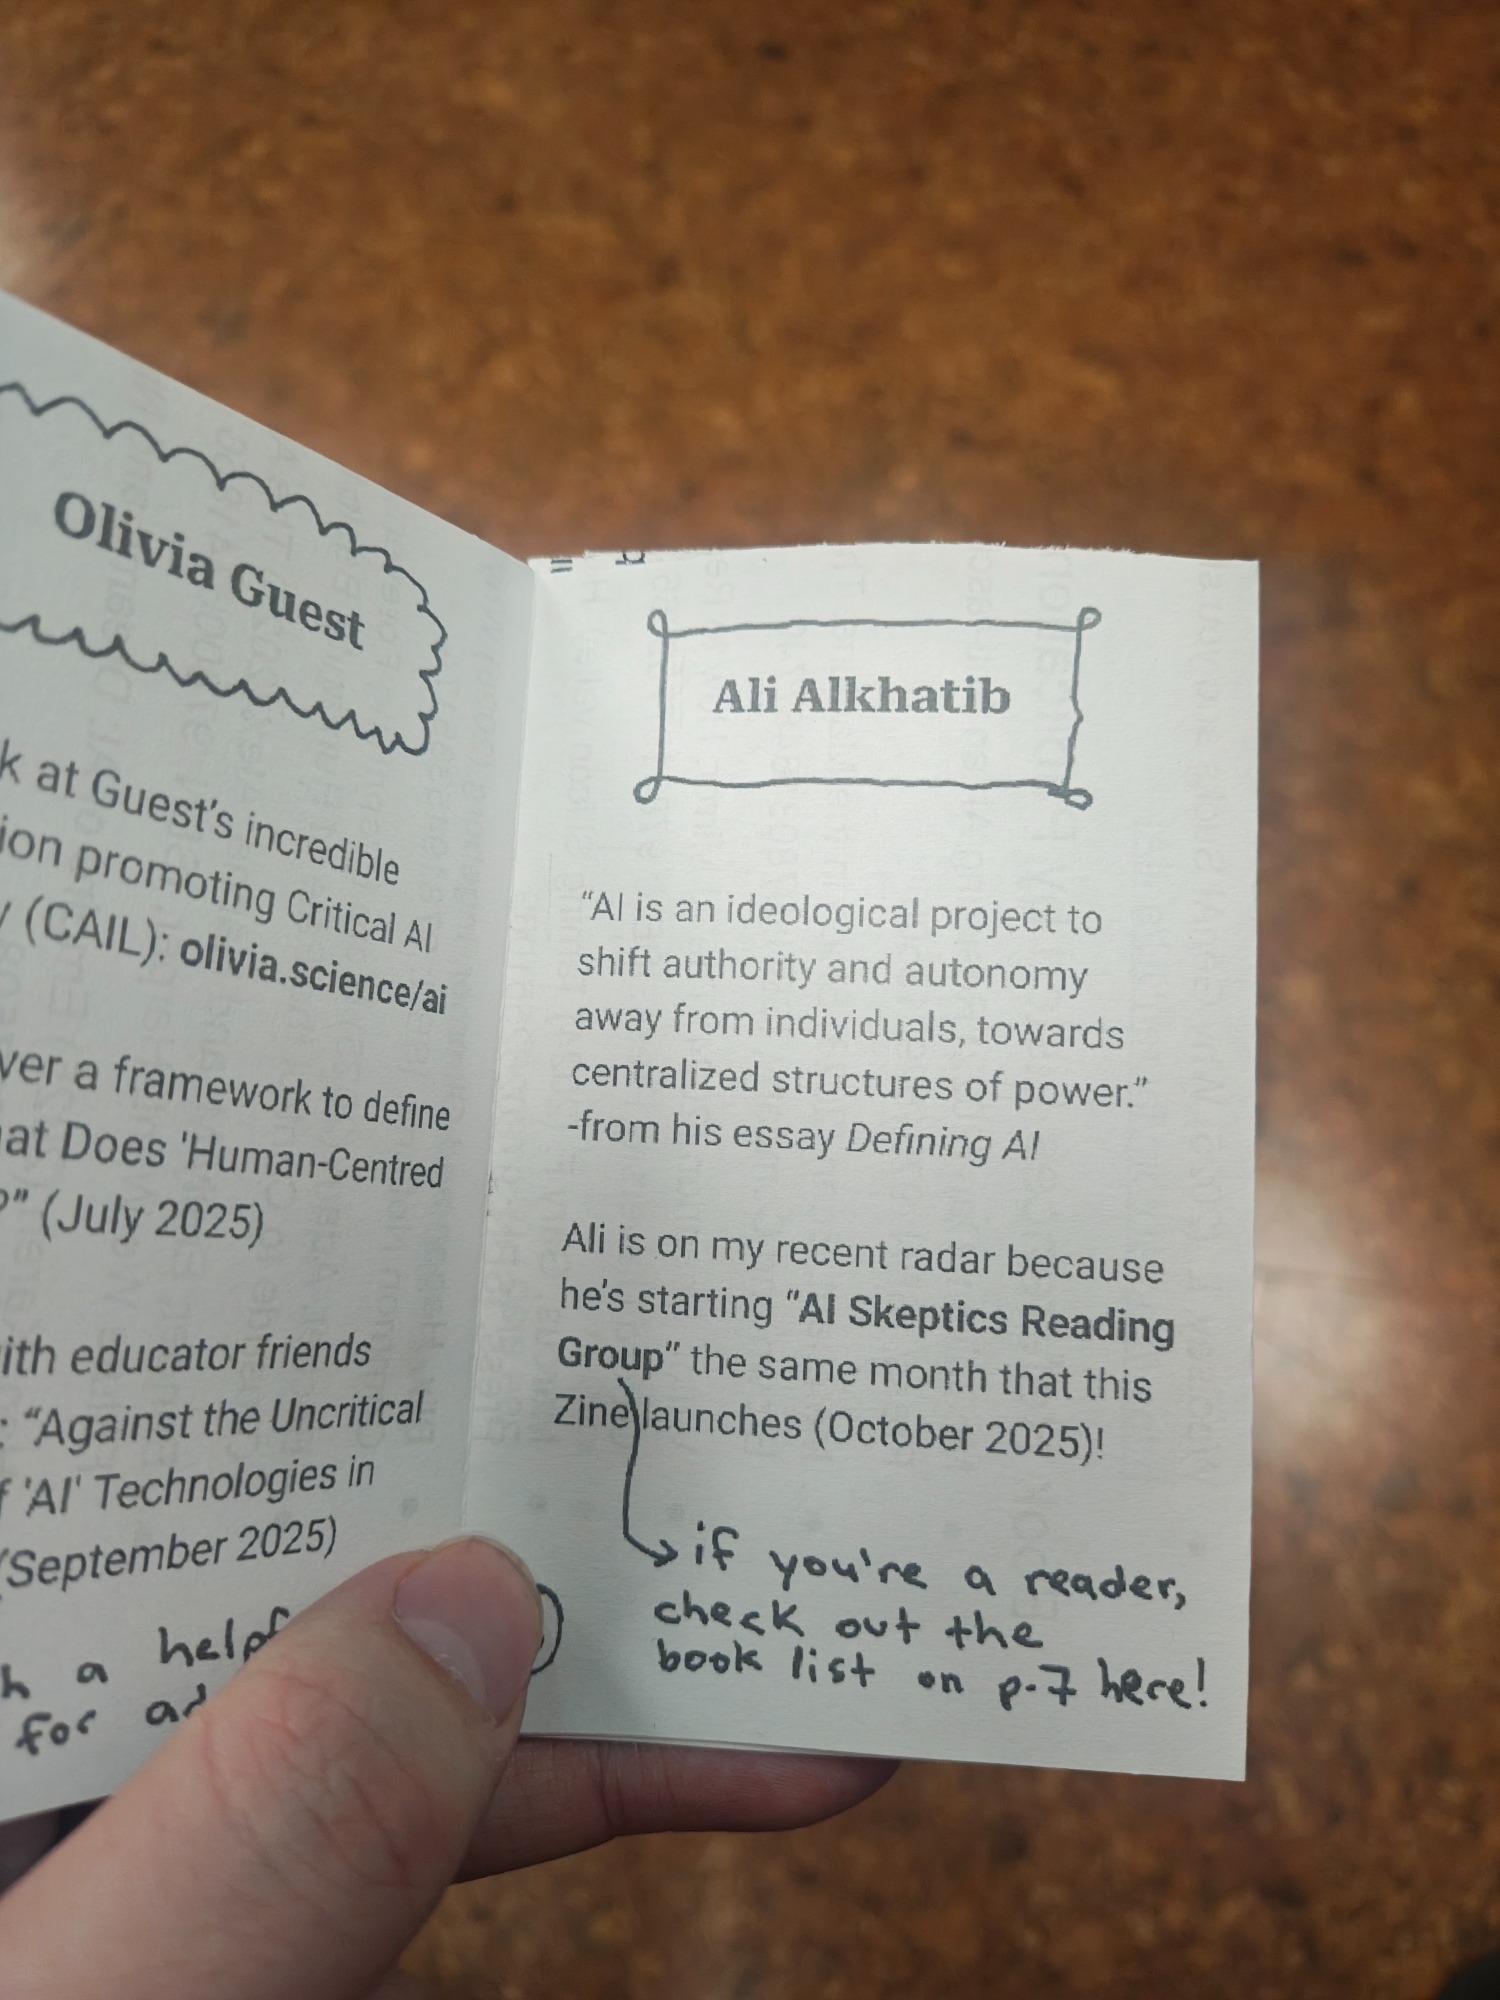 Olivia Guest
k at Guest's incredible
ion promoting Critical AI
y (CAIL): olivia.science/ai
ver a framework to define
hat Does 'Human-Centred
?" (July 2025)
ith educator friends
: "Against the Uncritical
f 'AI' Technologies in
(September 2025)
h a helpf
for ad
Ali Alkhatib
"AI is an ideological project to
shift authority and autonomy
away from individuals, towards
centralized structures of power."
-from his essay Defining AI
Ali is on my recent radar because
he's starting "AI Skeptics Reading
Group" the same month that this
Zine launches (October 2025)!
if you're a reader,
check out the
book list on p.7 here!